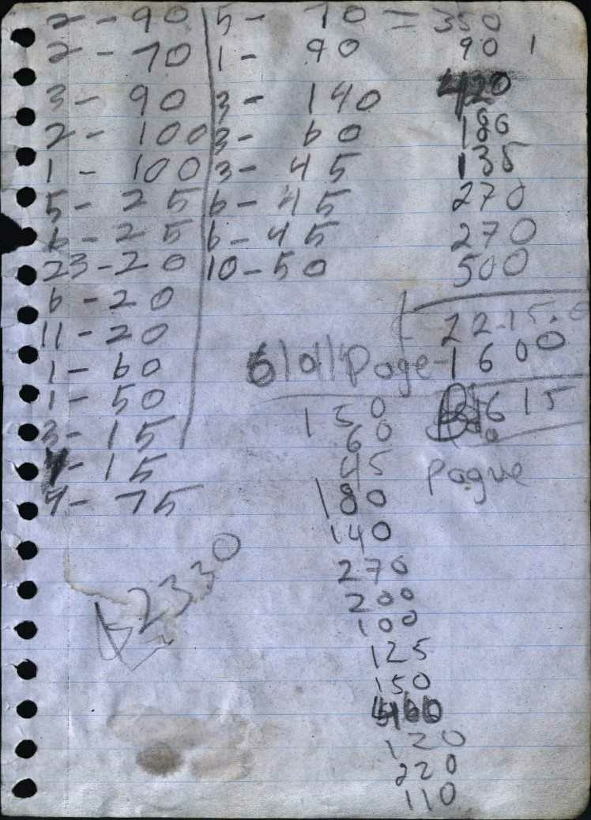 2 - 90 5 - 70 = 350
2 - 70 1 - 90 90 1
3 - 90 3 - 140 420
2 - 100 3 - 60 180
1 - 100 3 - 45 135
5 - 25 6 - 45 270
6 - 25 6 - 45 270
23 - 20 10 - 50 500
6 - 20
11 - 20 2215.0
1 - 60 Page - 1600
1 - 50 615
3 - 15 150
60
1 - 15 45 pague
7 - 75 180
140
2330 270
200
100
125
150
460
120
220
110